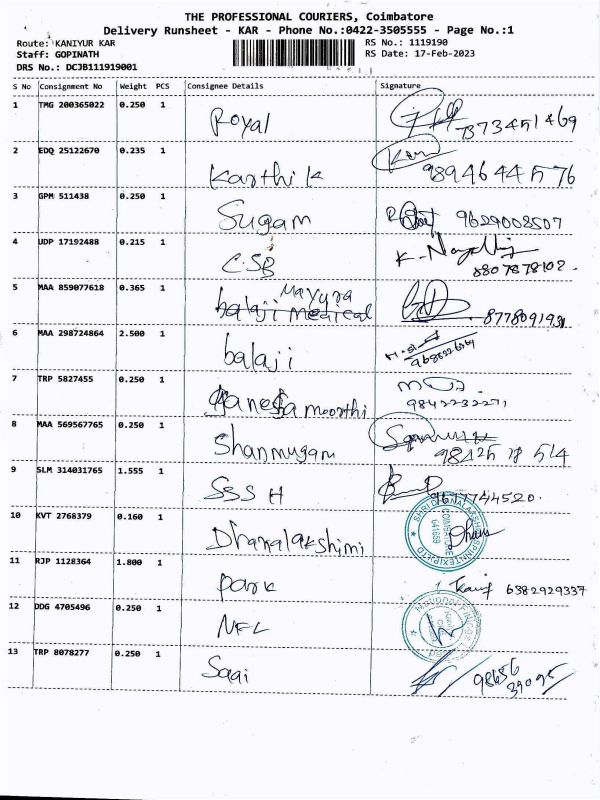 THE PROFESSIONAL COURIERS, Coimbatore
Delivery Runsheet - KAR - Phone No.:0422-3505555 - Page No.:1
Route: KANIYUR KAR
RS No.: 1119190
Staff: GOPINATH
RS Date: 17-Feb-2023
DRS No.: DCJB111919001
S No Consignment No Weight PCS Consignee Details Signature
1 TMG 200365022 0.250 1 Royal 7373451469
2 EDQ 25122670 0.235 1 Karthik 9894644576
3 GPM 511438 0.250 1 Sugam 9629008507
4 UDP 17192488 0.215 1 CSB
8807878102.
5 MAA 859077618 0.365 1 Mayura
balaji medical 877809193
6 MAA 298724864 2.500 1 balaji
7 TRP 5827455 0.250 1 Ganesa moorthi
9842232271
8 MAA 569567765 0.250 1 Shanmugam
9 SLM 314031765 1.555 1 SSSH 9677744520.
10 KVT 2768379 0.160 1 Dhanalakshimi
COIMBATORE
641659
11 RJP 1128364 1.800 1 park 6382929337
12 DDG 4705496 0.250 1 NFL
13 TRP 8078277 0.250 1 Sagi 98656
39095